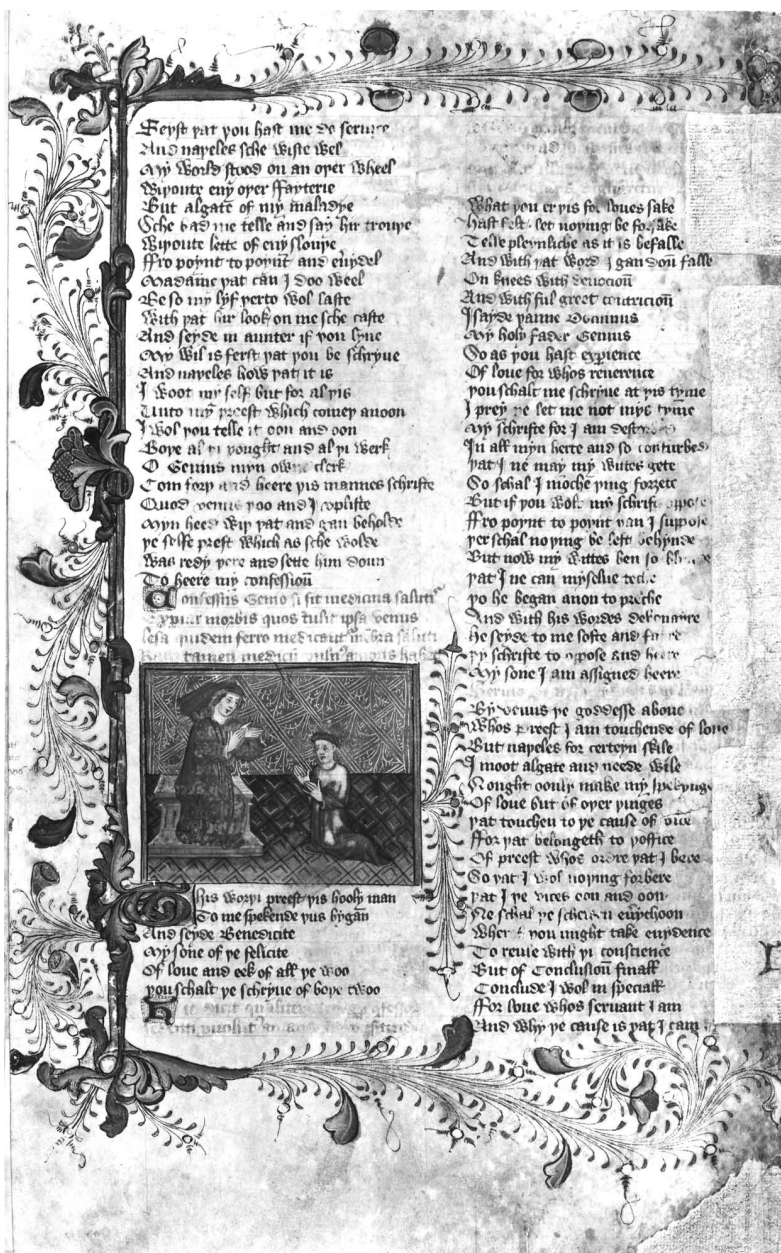 Seyst þat þou hast me do seruice
And naþeles sche wiste wel
My world stood on an oþer wheel
Wiþoute eny oþer fayterie
But algate of my maladye
Sche bad me telle and say hir trouþe
Wiþoute lette of eny slouþe
ffro poynt to poynt and euydel
Madame þat can I doo weel
Be so my lyf þerto wol laste
With þat hir look on me sche caste
And seyde in aunter if þou lyue
My wil is ferst þat þou be schryue
And naþeles how þat it is
I woot my self but for al þis
Unto my preest which comeþ anoon
I wol þou telle it oon and oon
Boþe al þi þought and al þi werk
O Genius myn owne clerk
Com forþ and heere þis mannes schrifte
Quod venus þoo and I vplifte
Myn heed wiþ þat and gan beholde
þe selfe prest which as sche wolde
Was redy þere and sette him doun
To heere my confessioun
Confessus Genio si sit medicina salutis
Expiar morbis quos tulit ipsa venus
lesa quidem ferro medicant membra saluti
Raro tamen medicum
This worþi preest þis hooly man
To me spekende þus bygan
And seyde Benedicite
My sone of þe felicite
Of loue and eek of all þe woo
þou schalt þe schryue of boþe twoo
What þou er þis for loues sake
Hast felt let noþing be forsake
Telle pleynliche as it is befalle
And with þat word I gan doun falle
On knees with deuocioun
And with ful greet contricioun
I sayde þanne Dominus
My holy fader Genius
So as þou hast experience
Of loue for whos reuerence
þou schalt me schryue at þis tyme
I prey þe let me not mys tyme
My schrifte for I am destourbed
In all myn herte and so contourbed
þat I ne may my wittes gete
So schal I moche þing forȝete
But if þou wole my schrift oppose
ffro poynt to poynt þan I suppose
þer schal noþing be left behynde
But now my wittes ben so blynde
þat I ne can myselue teche
þo he began anon to preche
And with his wordes debonayre
He seyde to me softe and fayre
þy schrifte to oppose and heere
My sone I am assigned heere
By venus þe goddesse aboue
Whos preest I am touchende of loue
But naþeles for certeyn skile
I moot algate and neede wile
Nought oonly make my spekynges
Of loue but of oþer þinges
þat touchen to þe cause of vice
ffor þat belongeth to þoffice
Of preest whos ordre þat I bere
So þat I wol noþing forbere
þat I þe vices oon and oon
Ne schal þe schewen euerychoon
Wher of þou might take euydence
To reule with þi conscience
But of Conclusioun finall
Conclude I wol in speciall
ffor loue whos seruant I am
And why þe cause is þat I cam